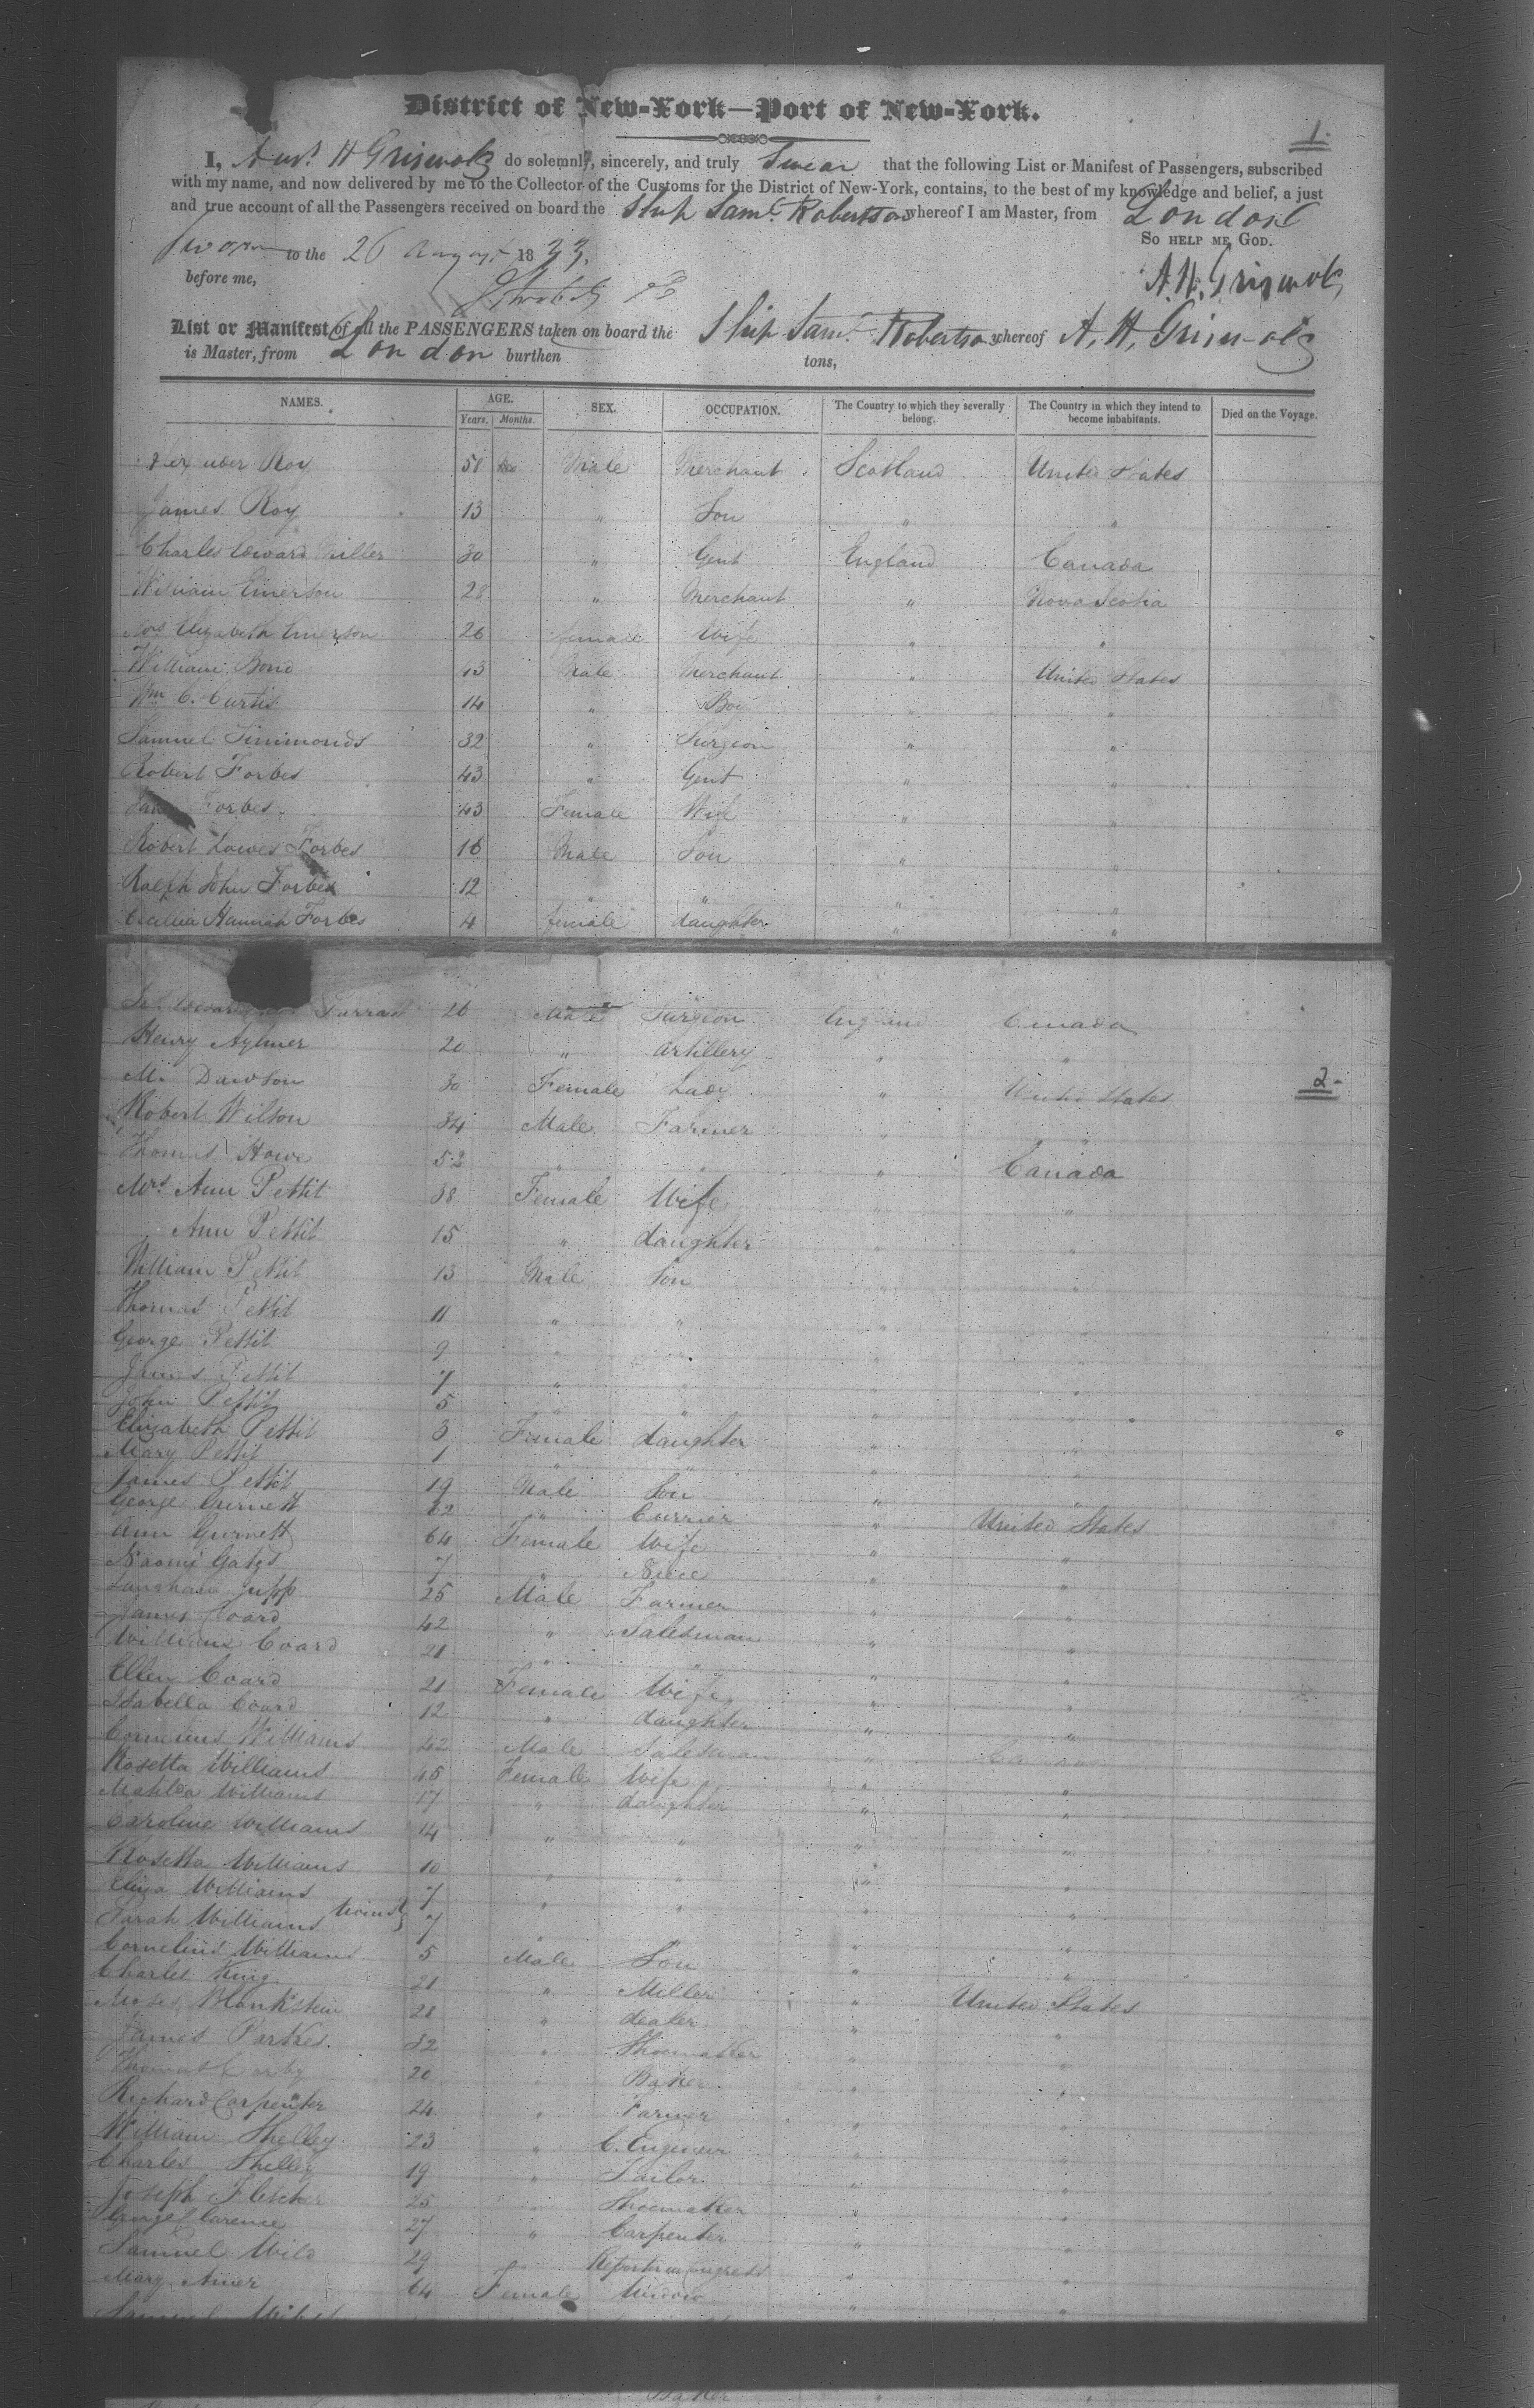 District of New-York—Port of New-York.
1.
I, H Griswold do solemnly, sincerely, and truly Swear that the following List or Manifest of Passengers, subscribed
with my name, and now delivered by me to the Collector of the Customs for the District of New-York, contains, to the best of my knowledge and belief, a just
and true account of all the Passengers received on board the Ship Saml. Robertson whereof I am Master, from London
So help me God.
Sworn to the 26 August 1833.
before me,
A. H. Griswold
List or Manifest of all the PASSENGERS taken on board the Ship Saml. Robertson whereof A. H. Griswold
is Master, from London burthen tons,
NAMES. AGE. SEX. OCCUPATION. The Country to which they severally belong. The Country in which they intend to become inhabitants. Died on the Voyage.
Years. Months.
Roy Male Merchant Scotland United States
James Roy 13 " Son " "
Charles Edward Miller 30 " Gent England Canada
William Emerson 28 " Merchant " Nova Scotia
Mrs Elizabeth Emerson 26 female Wife " "
William Bond Male Merchant " United States
Wm C. Curtis 14 " Boy " "
Samuel Simmonds 32 " Surgeon " "
Robert Forbes 43 " Gent " "
Forbes 43 Female Wife " "
Robert Lowes Forbes 16 Male Son " "
Ralph John Forbes 12 " " " "
Cecillia Hannah Forbes 4 female daughter " "
26 Male Surgeon England Canada
Henry Aylmer 20 " Artillery " "
M. Dawson 30 Female Lady " United States
2
Robert Wilson 34 Male Farmer " "
Thomas Howe 52 " " " Canada
Mrs. Ann Pettit 38 Female Wife " "
Ann Pettit 15 " daughter " "
William Pettit 13 Male Son " "
Thomas Pettit 11 " " " "
George Pettit 9 " " " "
James Pettit 7 " " " "
John Pettit 5 " " " "
Elizabeth Pettit 3 Female daughter " "
Mary Pettit 1 " " " "
James Pettit 19 Male Son " "
George Gurnett 62 " Currier " United States
Ann Gurnett 64 Female Wife " "
Naomi Gates 7 " Niece " "
Langham Jupp 25 Male Farmer " "
James Coard 42 " Salesman " "
William Coard 21 " " " "
Ellen Coard 21 Female Wife " "
Isabella Coard 12 " daughter " "
Cornelius Williams 42 Male Salesman " Canada
Rosetta Williams 45 Female Wife " "
Matilda Williams 17 " daughter " "
Caroline Williams 14 " " " "
Rosetta Williams 10 " " " "
Eliza Williams 7 " " " "
Sarah Williams twins 7 " " " "
Cornelius Williams 5 Male Son " "
Charles King 21 " Miller " United States
Moses Blankstein 28 " dealer " "
James Parkes 32 " Shoemaker " "
Thomas 20 " Baker " "
Richard Carpenter 24 " Farmer " "
William Shelley 23 " C. Engineer " "
Charles Shelley 19 " Sailor " "
Joseph Fletcher 25 " Shoemaker " "
George Clarence 27 " Carpenter " "
Samuel Wild 29 " " "
Mary Amer 64 Female Widow " "
Samuel
Baker